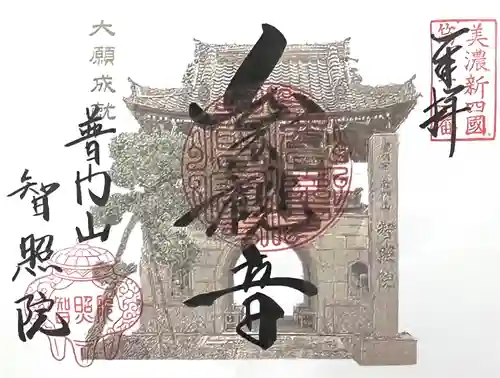 美濃新四國
奉拝
観音
智照院
大願成就
普門山
智照院
智照院